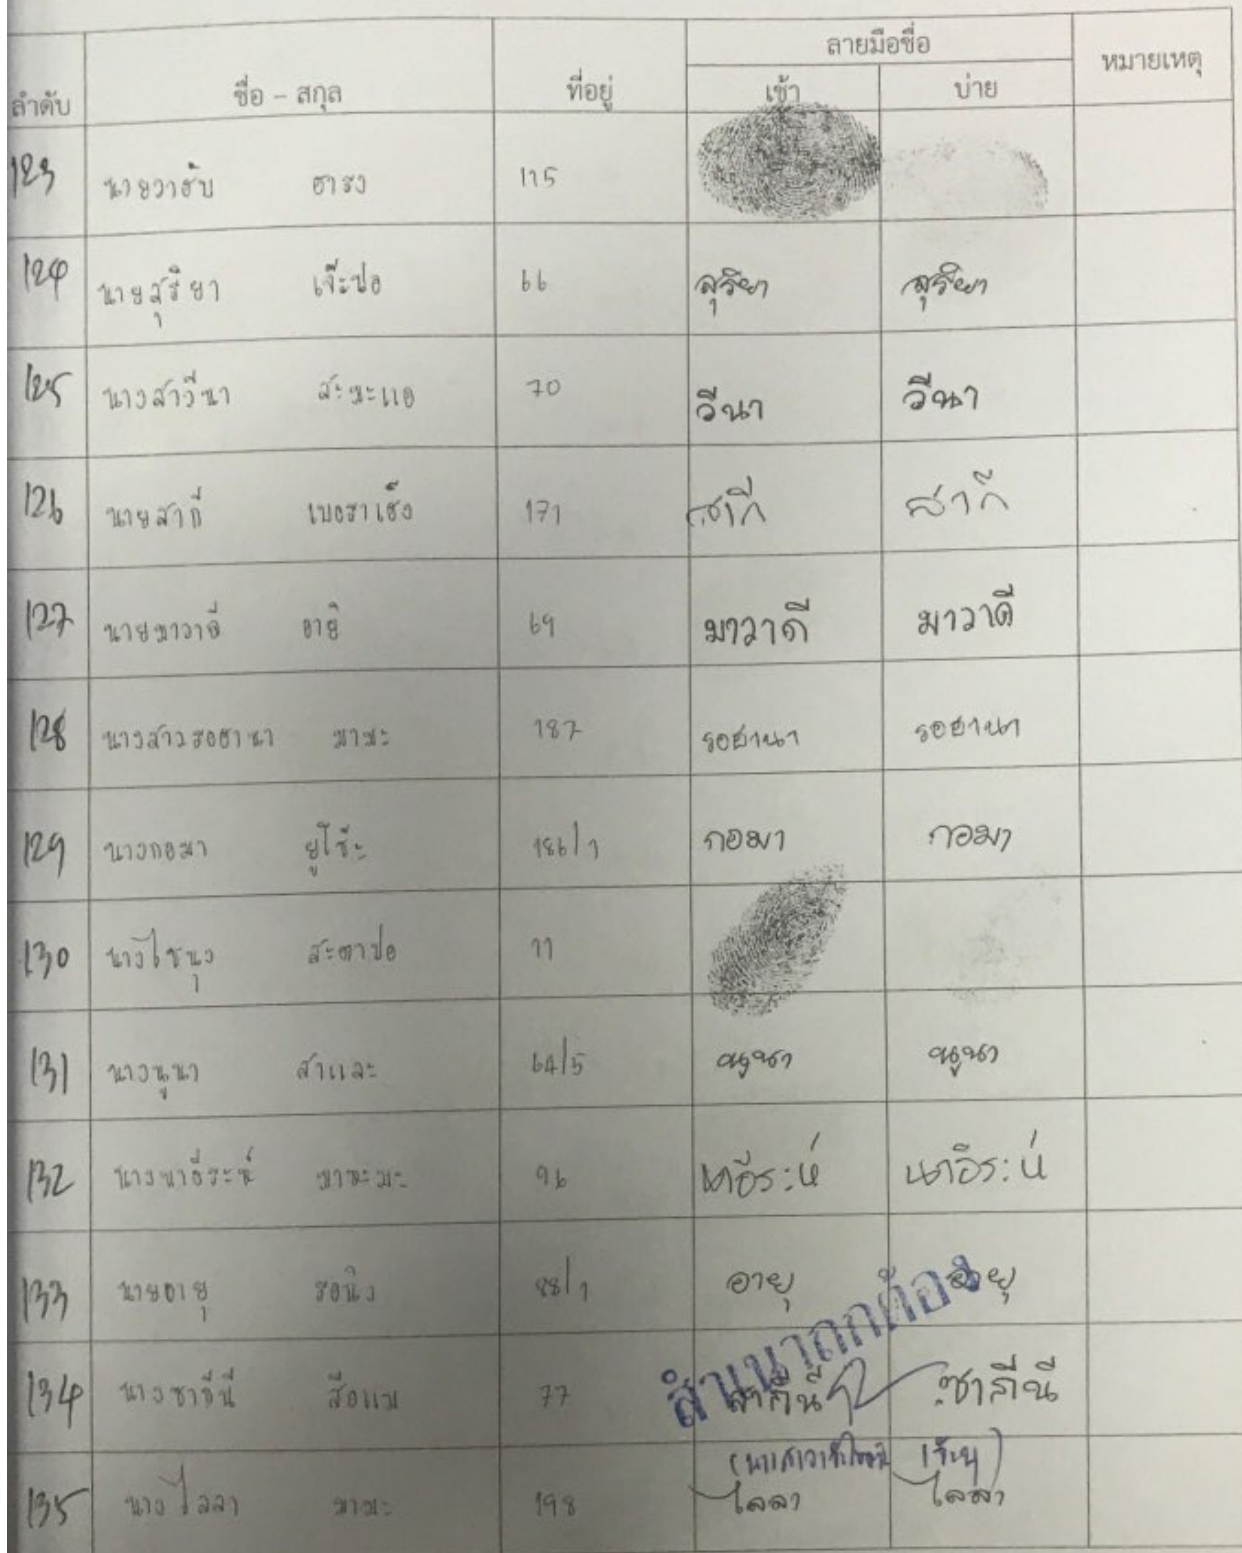 ลำดับ ชื่อ - สกุล ที่อยู่ ลายมือชื่อ หมายเหตุ
เช้า บ่าย
123 นายวาฮับ 115
124 นายสุริยา เจ๊ะปอ 66 สุริยา สุริยา
125 นางสาวีนา สะมะแอ 70 วีนา วีนา
126 นายสากี เบอราเฮง 171 สากี สากี
127 นายมาวาดี อายิ 69 มาวาดี มาวาดี
128 นางสาวรอฮานา มามะ 187 รอฮานา รอฮานา
129 นางกอมา ยูโซ๊ะ 186/1 กอมา กอมา
130 สะตาปอ 11
131 นางนูนา สาและ 64/5 นูนา นูนา
132 นางนาอีระห์ มามะมะ 96 นาอีระห์ นาอีระห์
133 นายอายุ 88/1 อายุ อายุ
สำเนาถูกต้อง
134 นางซากีนี สือแม 77 ซากีนี ซากีนี
135 นางไลลา มามะ 198 ไลลา ไลลา